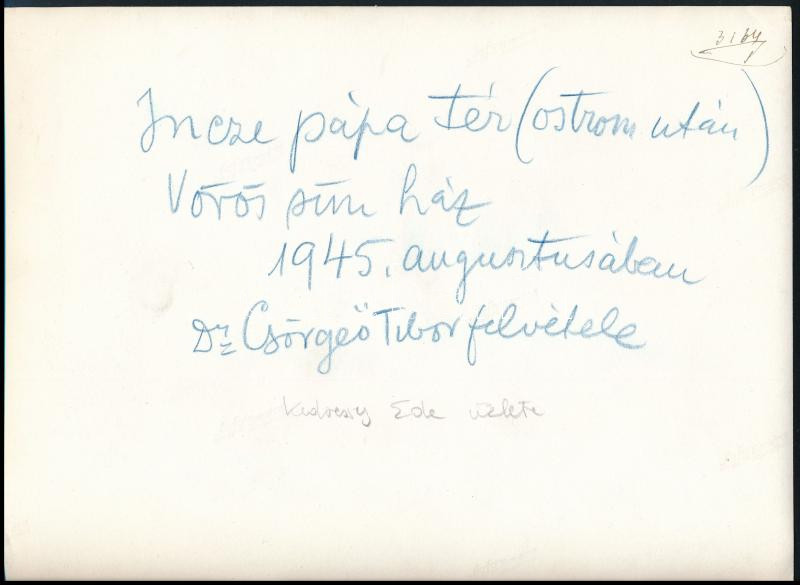 3164
Incze pápa tér (ostrom után)
Vörös sün ház
1945. augusztusában
Dr. Csörgeő Tibor felvétele
Ede üzlete